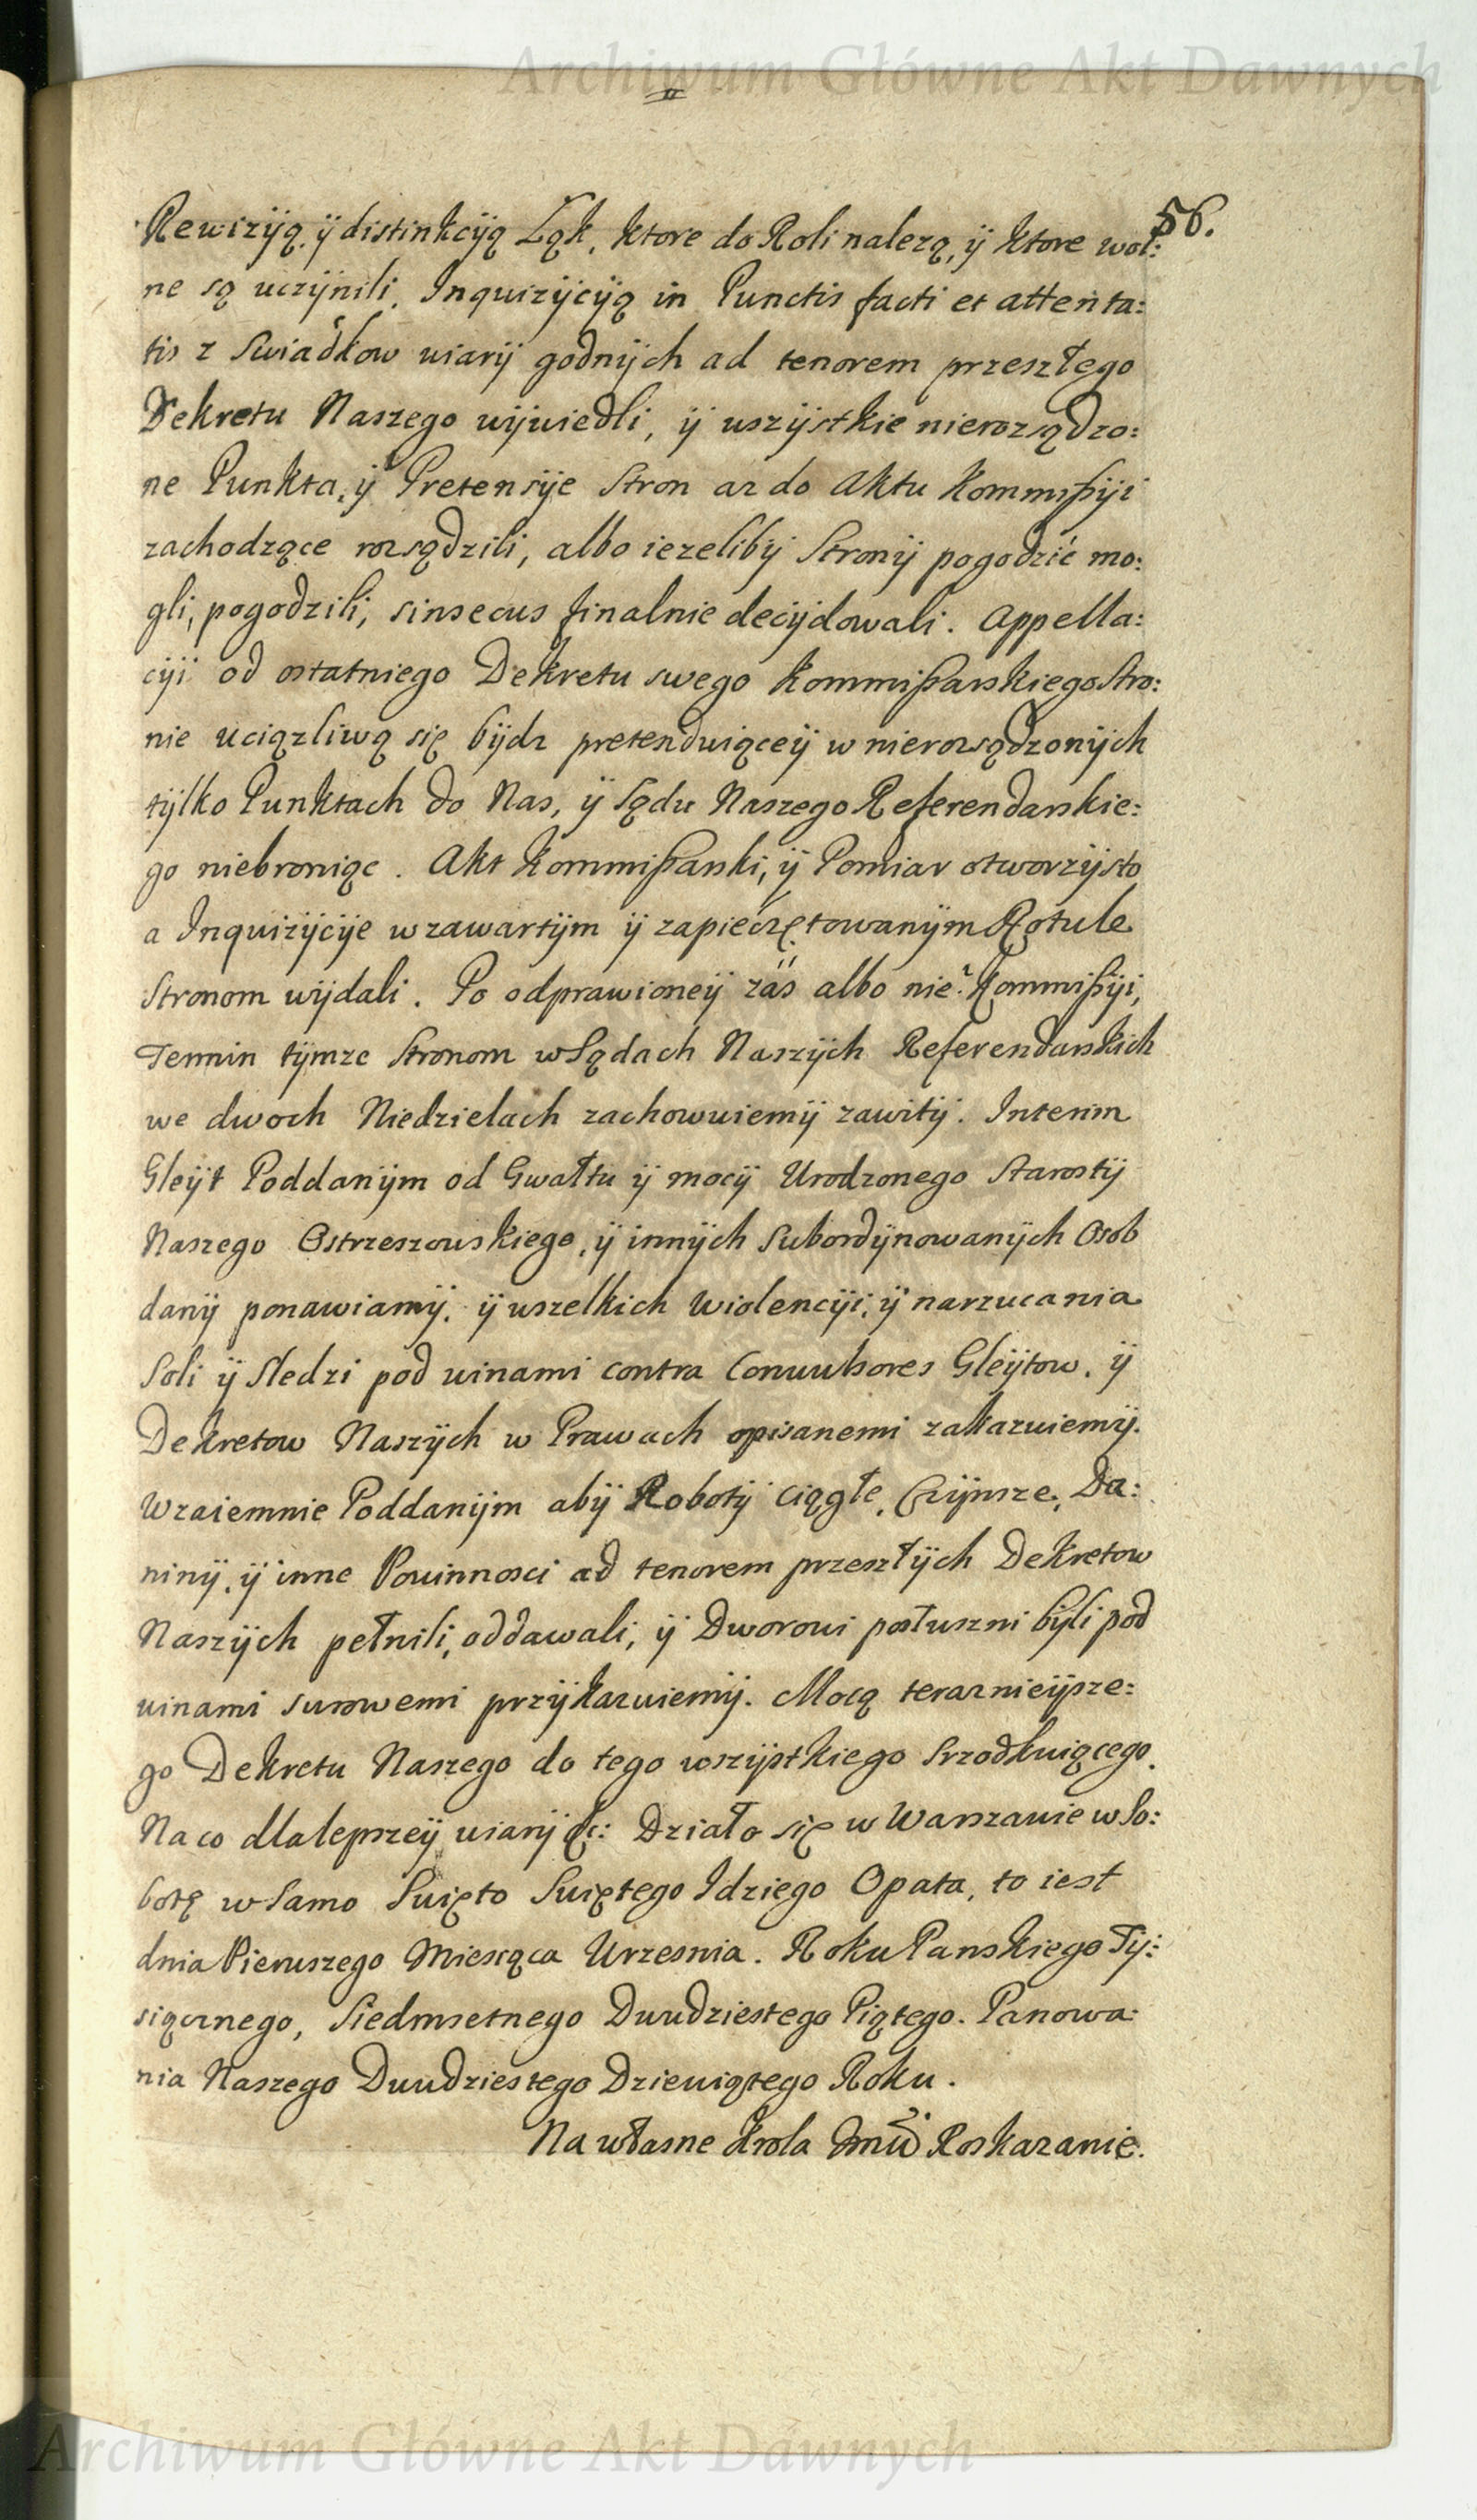 Archiwum Główne Akt Dawnych
56.
Rewizyią, ÿ distinkcÿią Łąk, ktore do Roli nalezą, ÿ ktore wol:
ne są uczÿnili, Inquizÿcÿią in Punctis facti et attenta:
tis z Swiadkow wiarÿ godnÿch ad tenorem przeszłego
Dekretu Naszego wÿwiedli, ÿ wszÿstkie nierozsądzo:
ne Punkta, ÿ Pretensÿe Stron az do Aktu Kommißÿi
zachodzące rozsądzili, albo iezelibÿ Stronÿ pogodzić mo:
gli, pogodzili, sinsecus finalnie decÿdowali. Appella:
cÿi od ostatniego Dekretu swego Kommißarskiego Stro:
nie uciązliwą się bÿdz pretenduiąceÿ w nierozsądzonÿch
tÿlko Punktach do Nas, ÿ Sądu Naszego Referendarskie:
go niebroniąc. Akt Kommißarski, ÿ Pomiar otworzÿsto
a Inquizÿcÿe w zawartÿm ÿ zapieczętowanÿm Rotule
Stronom wÿdali. Po odprawioneÿ zaś albo nie Kommißÿi,
Termin tÿmze Stronom w Sądach Naszÿch Referendarskich
we dwoch Niedzielach zachowuiemÿ zawitÿ. Interim
Gleÿt Poddanÿm od Gwałtu ÿ mocÿ Urodzonego Starostÿ
Naszego Ostrzeszowskiego, ÿ innÿch Subordÿnowanÿch Osob
danÿ ponawiamÿ, ÿ wszelkich Wiolencÿi, ÿ narzucania
Soli ÿ Sledzi pod winami contra Convulsores Gleÿtow, ÿ
Dekretow Naszÿch w Prawach opisanemi zakazuiemÿ.
Wzaiemnie Poddanÿm abÿ Robotÿ ciągłe, Czÿnsze, Da:
ninÿ, ÿ inne Powinnosci ad tenorem przeszłÿch Dekretow
Naszÿch pełnili, oddawali, ÿ Dworowi posłuszni bÿli pod
winami surowemi przÿkazuiemÿ. Mocą teraznieÿsze:
go Dekretu Naszego do tego wszÿstkiego Srzodkuiącego.
Na co dla lepszeÿ wiarÿ &c: Działo się w Warszawie w So:
botę w Samo Swięto Swiętego Idziego Opata, to iest
dnia Pierwszego Miesiąca Wrzesnia. Roku Panskiego Tÿ:
siącznego, Siedmsetnego Dwudziestego Piątego. Panowa:
nia Naszego Dwudziestego Dziewiątego Roku.
Na własne Krola Jmći Roskazanie.
Archiwum Główne Akt Dawnych